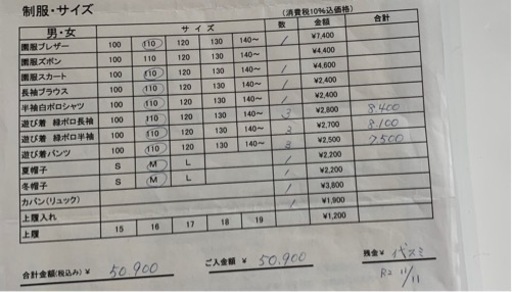 制服・サイズ
(消費税10%込価格)
男・女 サイズ 数 金額 合計
園服ブレザー 100 110 120 130 140～ 1 ¥7,400
園服ズボン 100 110 120 130 140～ ¥4,400
園服スカート 100 110 120 130 140～ 1 ¥4,600
長袖ブラウス 100 110 120 130 140～ 1 ¥2,400
半袖白ポロシャツ 100 110 120 130 140～ 1 ¥2,400
遊び着 緑ポロ長袖 100 110 120 130 140～ 3 ¥2,800 8400
遊び着 緑ポロ半袖 100 110 120 130 140～ 3 ¥2,700 8,100
遊び着パンツ 100 110 120 130 140～ 3 ¥2,500 7,500
夏帽子 S M L 1 ¥2,200
冬帽子 S M L 1 ¥2,200
カバン(リュック) 1 ¥3,800
上履入れ 1 ¥1,900
上履 15 16 17 18 19 ¥1,200
合計金額(税込み) ¥ 50,900 ご入金額 ¥ 50,900 残金 ¥
R2 11/11